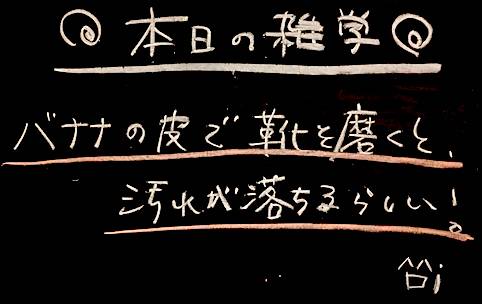 本日の雑学
バナナの皮で靴を磨くと、
汚れが落ちるらしい!。